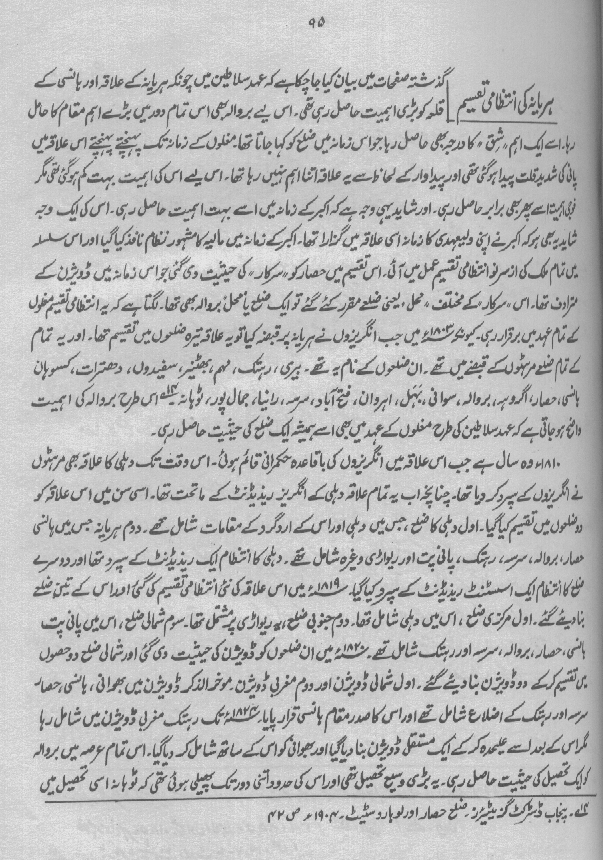 ۹۵
ہریانہ کی انتظامی تقسیم
گذشتہ صفحات میں بیان کیا جا چکا ہے کہ عہد سلاطین میں چونکہ ہریانہ کے علاقہ اور ہانسی کے
قلعہ کو بڑی اہمیت حاصل رہی تھی۔ اس لیے بروالہ بھی اس تمام دور میں بڑے اہم مقام کا حامل
رہا۔ اسے ایک اہم "شق" کا درجہ بھی حاصل رہا جو اس زمانہ میں ضلع کو کہا جاتا تھا۔ مغلوں کے زمانہ تک پہنچتے پہنچتے اس علاقہ میں
پانی کی شدید قلت پیدا ہو گئی تھی اور پیداوار کے لحاظ سے یہ علاقہ اتنا اہم نہیں رہا تھا۔ اس لیے اس کی اہمیت بہت کم ہو گئی تھی مگر
فوجی اہمیت اسے پھر بھی برابر حاصل رہی۔ اور شاید یہی وجہ ہے کہ اکبر کے زمانہ میں اسے بہت اہمیت حاصل رہی۔ اس کی ایک وجہ
شاید یہ بھی ہو کہ اکبر نے اپنی ولیعہدی کا زمانہ اسی علاقہ میں گذارا تھا۔ اکبر کے زمانہ میں مالیہ کا مشہور نظام نافذ کیا گیا اور اس سلسلہ
میں تمام ملک کی از سر نو انتظامی تقسیم عمل میں آئی۔ اس تقسیم میں حصار کو "سرکار" کی حیثیت دی گئی جو اس زمانہ میں ڈویژن کے
مترادف تھا۔ اس "سرکار" کے مختلف "محل" یعنی ضلعے مقرر کئے گئے تو ایک ضلع یا محل بروالہ بھی تھا۔ لگتا ہے کہ یہ انتظامی تقسیم مغلوں
کے تمام عہد میں برقرار رہی۔ کیونکہ ۱۸۰۳ء میں جب انگریزوں نے ہریانہ پر قبضہ کیا تو یہ علاقہ تیرہ ضلعوں میں تقسیم تھا۔ اور یہ تمام
کے تمام ضلعے مرہٹوں کے قبضے میں تھے۔ ان ضلعوں کے نام یہ تھے۔ بیری، رہتک، مہم، بھٹنیر، سفیدوں، دھترات، کسوہان
ہانسی، حصار، اگروہہ، بروالہ، سوانی، بہل، اہروان، فتح آباد، سرسہ، رانیا، جمال پور، ٹوہانہ اس طرح بروالہ کی اہمیت
واضح ہو جاتی ہے کہ عہد سلاطین کی طرح مغلوں کے عہد میں بھی اسے ہمیشہ ایک ضلع کی حیثیت حاصل رہی۔
۱۸۱۰ء وہ سال ہے جب اس علاقہ میں انگریزوں کی باقاعدہ حکمرانی قائم ہوئی۔ اس وقت تک دہلی کا علاقہ بھی مرہٹوں
نے انگریزوں کے سپرد کر دیا تھا۔ چنانچہ اب یہ تمام علاقہ دہلی کے انگریز ریذیڈنٹ کے ماتحت تھا۔ اسی سن میں اس علاقہ کو
دو ضلعوں میں تقسیم کیا گیا۔ اول دہلی کا ضلع، جس میں دہلی اور اس کے ارد گرد کے مقامات شامل تھے۔ دوم ہریانہ جس میں ہانسی
حصار، بروالہ، سرسہ، رہتک، پانی پت اور ریواڑی وغیرہ شامل تھے۔ دہلی کا انتظام ایک ریذیڈنٹ کے سپرد تھا اور دوسرے
ضلع کا انتظام ایک اسسٹنٹ ریذیڈنٹ کے سپرد کیا گیا۔ ۱۸۱۹ء میں اس علاقہ کی نئی انتظامی تقسیم کی گئی اور اس کے تین ضلعے
بنا دیئے گئے۔ اول مرکزی ضلع، اس میں دہلی شامل تھا۔ دوم جنوبی ضلع، یہ ریواڑی پر مشتمل تھا۔ سوم شمالی ضلع، اس میں پانی پت
ہانسی، حصار، بروالہ، سرسہ اور رہتک شامل تھے۔ ۱۸۲۰ء میں ان ضلعوں کو ڈویژن کی حیثیت دی گئی اور شمالی ضلع دو حصوں
میں تقسیم کر کے دو ڈویژن بنا دیئے گئے۔ اول شمالی ڈویژن اور دوم مغربی ڈویژن۔ موخر الذکر ڈویژن میں بھوانی، ہانسی، حصار
سرسہ اور رہتک کے اضلاع شامل تھے اور اس کا صدر مقام ہانسی قرار پایا۔ ۱۸۲۴ء تک رہتک مغربی ڈویژن میں شامل رہا
مگر اس کے بعد اسے علیحدہ کر کے ایک مستقل ڈویژن بنا دیا گیا اور بھوانی کو اس کے ساتھ شامل کر دیا گیا۔ اس تمام عرصہ میں بروالہ
کو ایک تحصیل کی حیثیت حاصل رہی۔ یہ بڑی وسیع تحصیل تھی اور اس کی حدود اتنی دور تک پھیلی ہوئی تھی کہ ٹوہانہ اسی تحصیل میں
پنجاب ڈسٹرکٹ گزیٹیئرز۔ ضلع حصار اور لوہارو سٹیٹ۔ ۱۹۰۴ء ص ۴۲